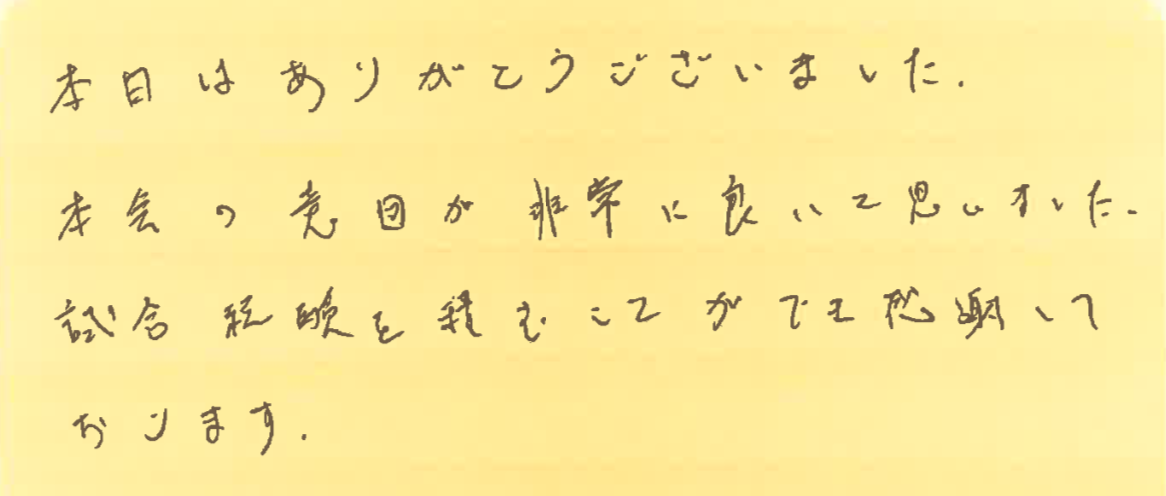 本日はありがとうございました.
本会の意図が非常に良いと思いました.
試合経験を積むことができ感謝して
おります.